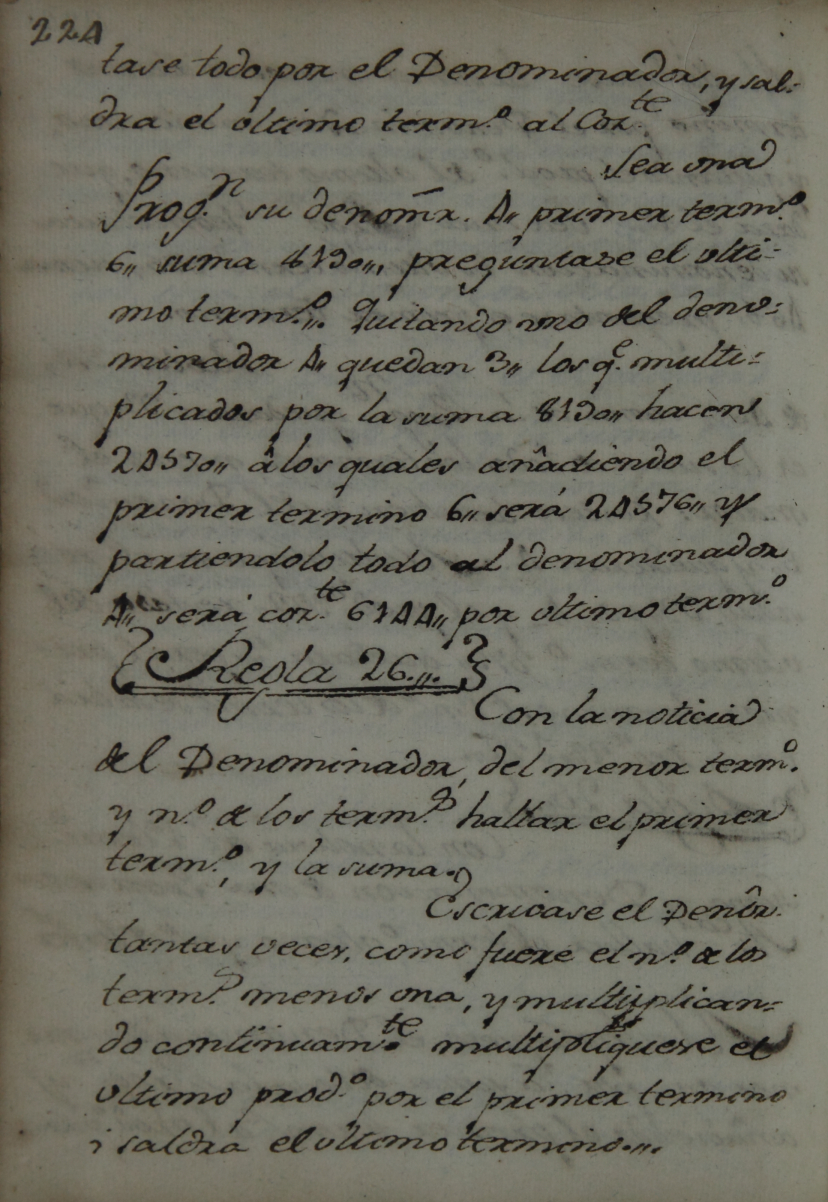 224
tase todo por el Denominador, y sal-
dra el ultimo term.º al Cor.te
Sea una
Prog.n su denomr. 4,, primer term.º
6,, suma 8190,,, preguntase el ulti-
mo term.º,,. Quitando uno del deno-
minador 4,, quedan 3,, los q.e multi-
plicados por la suma 8190,, hacen
24570,, â los quales añadiendo el
primer termino 6,, será 24576,, y
partiendolo todo al denominador
4,, será cor.te 6144,, por ultimo term.º
Regla 26.,,.
Con la noticia
del Denominador, del menor term.º
y n.º de los term.s hallar el primer
term.º, y la suma.
Escrivase el Denôr.
tantas veces, como fuere el n.º de los
term.s menos una, y multiplican-
do continuam.te multipliquese el
ultimo prod.º por el primer termino
i saldra el ultimo termino.,,.